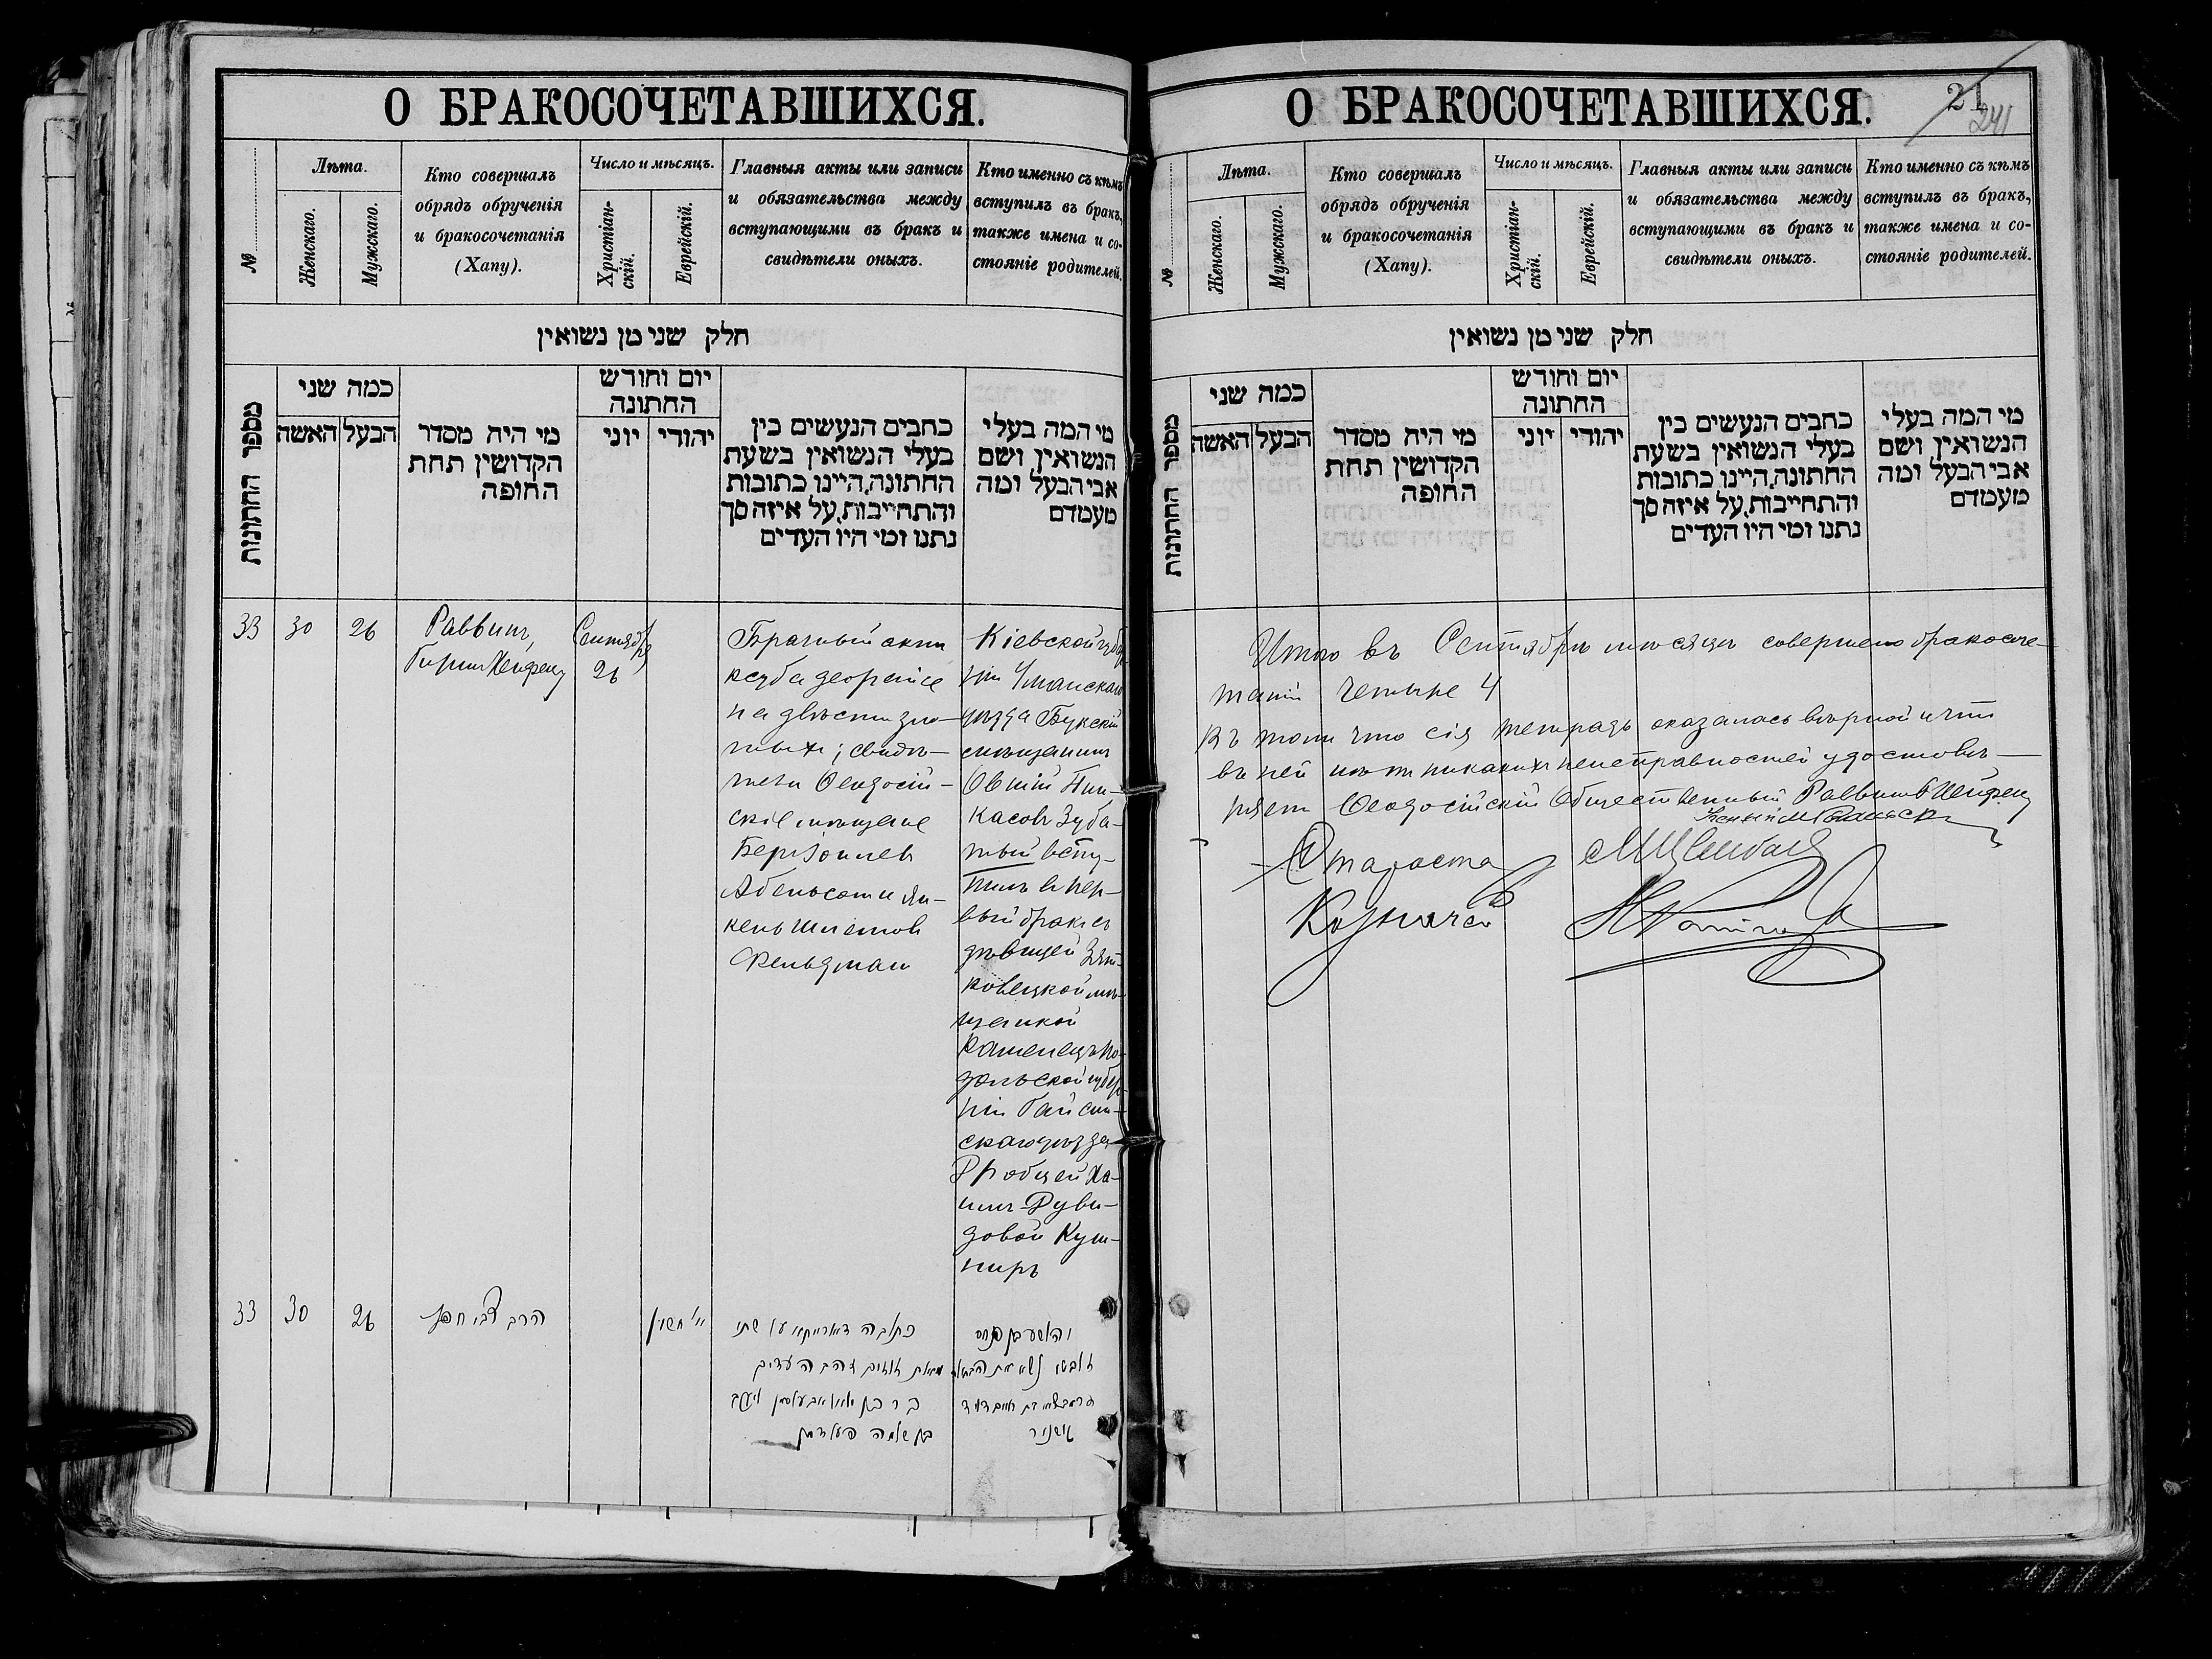 О БРАКОСОЧЕТАВШИХСЯ.
№
Лѣта.
Женскаго.
Мужскаго.
Кто совершалъ
обрядъ обрученія
и бракосочетанія
(Хапу).
Число и мѣсяцъ.
Христіан-
скій.
Еврейскій.
Главныя акты или записи
и обязательства между
вступающими въ бракъ и
свидѣтели оныхъ.
Кто именно съ кѣмъ
вступилъ въ бракъ,
также имена и со-
стояніе родителей.
חלק שני מן נשואין
מספר החתונות
כמה שני
האשה
הבעל
מי היה מסדר
הקדושין תחת
החופה
יום וחודש
החתונה
יוני
יהודי
כתבים הנעשים בין
בעלי הנשואין בשעת
החתונה, היינו כתובות
והתחייבות, על איזה סך
נתנו ומי היו העדים
מי המה בעלי
הנשואין ושם
אבי הבעל ומה
מעמדם
33
30
26
Раввинъ,
Гирш Хейфец
Сентябре
26
Брачный актъ
на двѣсти зло-
тыхъ; свидѣ-
тели Ѳеодосій-
скіе мѣщане
кель Шлемов
Фельдман
Кіевской губер-
ніи Уманскаго
уѣзда Букскій
мѣщанинъ
Овшій Пин-
касовъ Зуба-
тый всту-
пилъ въ пер-
вый бракъ съ
дѣвицей Зят-
ковецкой мѣ-
щанкой
Каменецъ По-
дольской губер-
ніи Гайсин-
скаго уѣзда
Руви-
довой Куш-
ниръ
33
30
26
הרב צבי חפץ
י' חשון
כתובה דאורייתא על שתי
מאות זהובים העדים
בן שלמה פעלדמן
קושניר
О БРАКОСОЧЕТАВШИХСЯ.
21
241
№
Лѣта.
Женскаго.
Мужскаго.
Кто совершалъ
обрядъ обрученія
и бракосочетанія
(Хапу).
Число и мѣсяцъ.
Христіан-
скій.
Еврейскій.
Главныя акты или записи
и обязательства между
вступающими въ бракъ и
свидѣтели оныхъ.
Кто именно съ кѣмъ
вступилъ въ бракъ,
также имена и со-
стояніе родителей.
חלק שני מן נשואין
מספר החתונות
כמה שני
האשה
הבעל
מי היה מסדר
הקדושין תחת
החופה
יום וחודש
החתונה
יוני
יהודי
כתבים הנעשים בין
בעלי הנשואין בשעת
החתונה, היינו כתובות
והתחייבות, על איזה סך
נתנו ומי היו העדים
מי המה בעלי
הנשואין ושם
אבי הבעל ומה
מעמדם
Итого въ Сентябрѣ мѣсяцѣ совершено бракосоче-
таній четыре 4
Въ томъ что сія тетрадь оказалась вѣрной и что
въ ней нѣтъ никакихъ неисправностей удостовѣ-
ряетъ Ѳеодосійскій Общественный Раввинъ Хейфец
Староста
Казначей